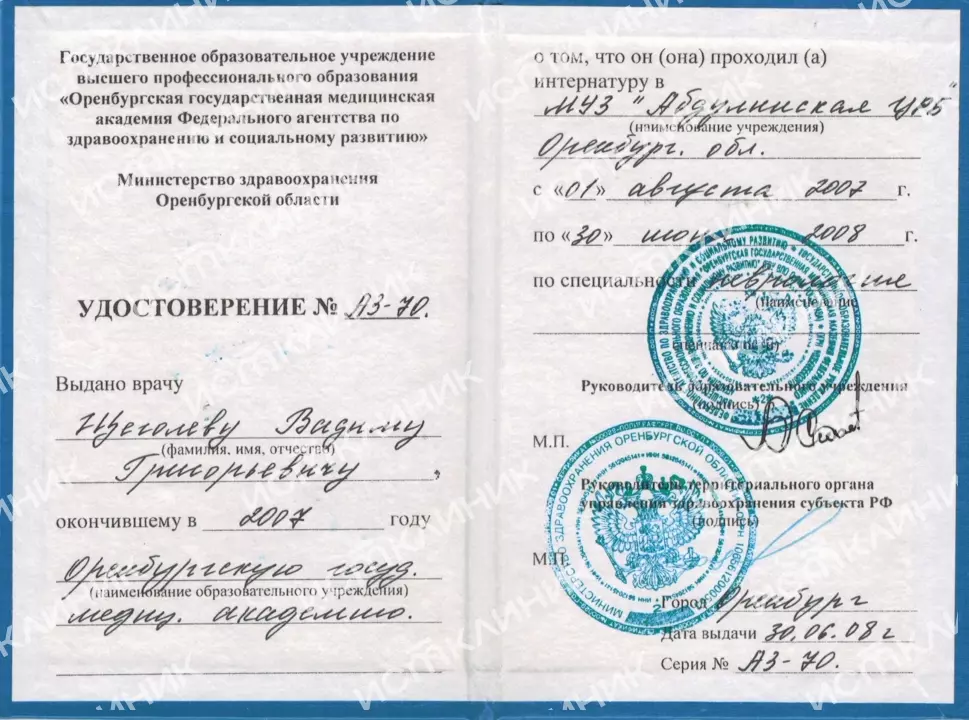 Государственное образовательное учреждение
высшего профессионального образования
«Оренбургская государственная медицинская
академия Федерального агентства по
здравоохранению и социальному развитию»
Министерство здравоохранения
Оренбургской области
УДОСТОВЕРЕНИЕ № АЗ-70.
Выдано врачу
Щеголеву Вадиму
(фамилия, имя, отчество)
Григорьевичу,
окончившему в 2007 году
Оренбургскую госуд.
(наименование образовательного учреждения)
медиц. академию.
о том, что он (она) проходил (а)
интернатуру в
МУЗ "Абдулинская ЦРБ"
(наименование учреждения)
Оренбург. обл.
с «01» августа 2007 г.
по «30» июня 2008 г.
по специальности неврология
Руководитель образовательного учреждения
(подпись)
М.П.
Руководитель территориального органа
управления здравоохранения субъекта РФ
(подпись)
М.П.
Город Оренбург
Дата выдачи 30.06.08 г
Серия № АЗ-70.
ИСТКЛИНИК